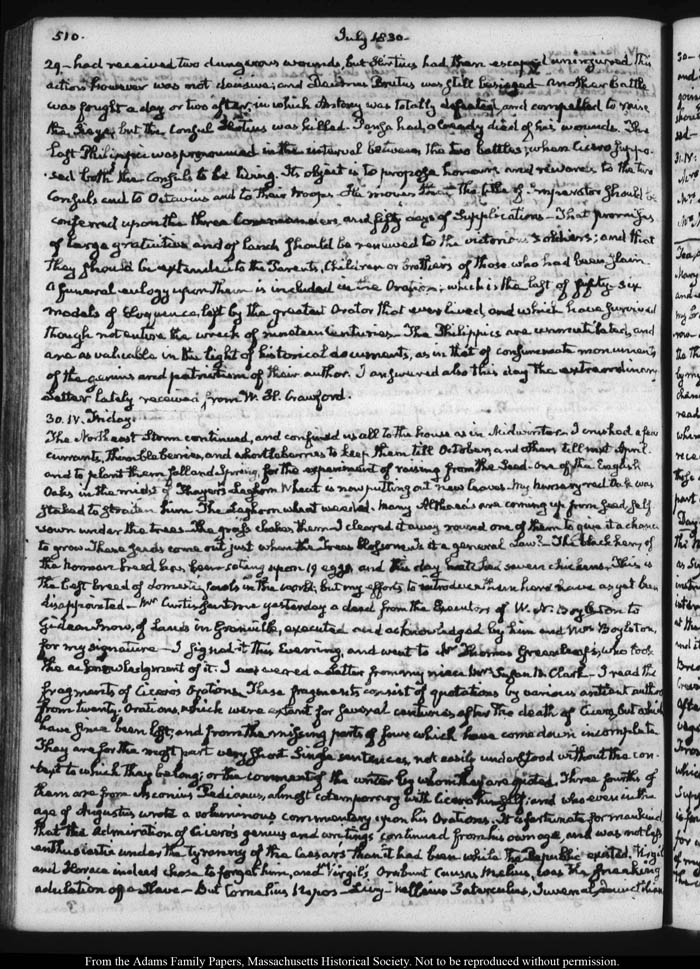 510.
July 1830.
29 — had received two dangerous wounds, but Hirtius had then escaped uninjured. This
action however was not decisive; and Decimus Brutus was still besieged — Another battle
was fought a day or two after, in which Antony was totally defeated, and compelled to raise
the siege; but the Consul Hirtius was killed. Pansa had already died of his wounds. The
last Philippic was pronounced in the interval between the two battles; when Cicero suppo-
sed both the Consuls to be living. Its object is to propose honours and rewards to the two
Consuls and to Octavius and to their troops. He moves that the title of Imperator should be
conferred upon the three Commanders, and fifty days of Supplications — That promises
of large gratuities and of lands should be renewed to the victorious soldiers; and that
they should be extended to the Parents, Children or brothers of those who had been slain.
A funeral eulogy upon them is included in the Oration; which is the last of fifty-six
models of Eloquence, left by the greatest Orator that ever lived, and which have survived
though not entire the wreck of nineteen Centuries. The Philippics are and
are as valuable in the light of historical documents, as in that of consummate monuments
of the genius and patriotism of their author. I answered also this day the extraordinary
Letter lately received from W. H. Crawford.
30. IV. Friday.
The Northeast Storm continued, and confined us all to the house as in Midwinter. I crushed a few
currants, thimbleberries, and whortleberries to keep them till October, and others till next April
and to plant them fall and Spring, for the experiment of raising from the Seed. One of the English
Oaks in the midst of Thayer's Leghorn Wheat is now putting out new leaves. My nursery red Oak was
staked to straiten him. The Leghorn wheat weeded. Many Althaea's are coming up from seed, self
sown under the trees. The grass chokes them — I cleared it away round one of them to give it a chance
to grow. These seeds come out just when the trees blossom. Is it a general Law? — The black hen, of
the Norman breed has been setting upon 19 eggs and this day hatched seven chickens. This is
the best breed of domestic fowls in the world; but my efforts to introduce them here have as yet been
disappointed — Mr Curtis sent me yesterday a deed from the Executors of W. N. Boylston to
Gideon Snow, of Lands in Granville, executed and acknowledged by him and Mrs Boylston,
for my signature — I signed it this Evening, and went to Mr Thomas Greenleaf's, who took
the acknowledgment of it. I answered a Letter from my niece Mrs Susan B. Clark — I read the
fragments of Cicero's Orations. These fragments consist of quotations by various antient authors
from twenty Orations, which were extant for several centuries after the death of Cicero, but which
have since been lost; and from the missing parts of four which have come down incomplete
They are for the most part very short Single sentences, not easily understood without the con-
text to which they belong; or the comment of the writer by whom they are quoted. Three fourths of
them are from Asconius Pedianus, almost cotemporary with Cicero himself; and who even in the
age of Augustus wrote a voluminous commentary upon his Orations. It is fortunate for mankind
that the admiration of Cicero's genius and writings continued from his own age, and was not less
enthusiastic under the tyranny of the Caesars than it had been while the Republic existed. Virgil
and Horace indeed chose to forget him, and Virgil's Orabunt Causas Melius, was the sneaking
adulation of a Slave — But Cornelius Nepos — Livy — Velleius Paterculus, Juvenal,
From the Adams Family Papers, Massachusetts Historical Society. Not to be reproduced without permission.